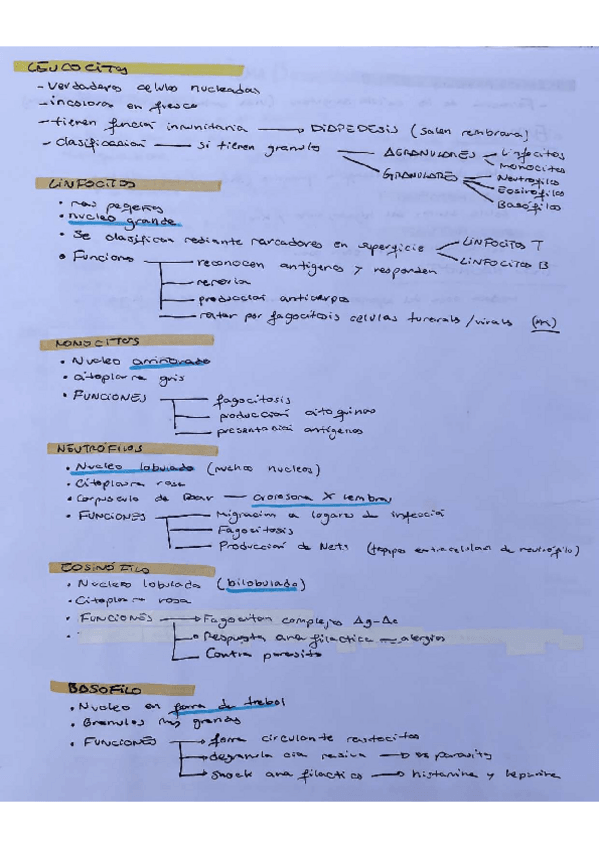 LEUCOCITOS
- verdaderas celulas nucleadas
- incoloros en fresco
- tienen función inmunitaria → DIAPEDESIS (salen membrana)
- clasificacion → si tienen granulo
AGRANULARES Linfocitos
Monocitos
GRANULARES Neutrofilos
Eosirofilos
Basófilos
LINFOCITOS
• mas pequeños
• nucleo grande
• Se clasifican mediante marcadores en superficie LINFOCITOS T
LINFOCITOS B
• Funciones reconocen antígenos y responden
memoria
producción anticuerpos
matar por fagocitosis celulas tumorals/virals
MONOCITOS
• Nucleo arriñonado
• citoplasma gris
• FUNCIONES fagocitosis
producción citoquinas
presentación antígenos
NEUTRÓFILOS
• Nucleo lobulado (muchos nucleos)
• Citoplasma rosa
• Corpusculo de Barr — cromosoma X
• FUNCIONES Migracion a lugares de infección
Fagocitosis
Producción de Nets (trampas extracelulares de neutrófilo)
EOSINÓFILO
• Nucleo lobulado (bilobulado)
• Citoplasma rosa
• FUNCIONES → Fagocitan complejos Ag-Ac
Respuesta anafilactica — alergias
Contra parasito
BASOFILO
• Nucleo en forma de trebol
• Granulos mas grandes
• FUNCIONES → forma circulante mastocitos
degranulacion masiva → parasitos
shock anafilactico → histamina y heparina